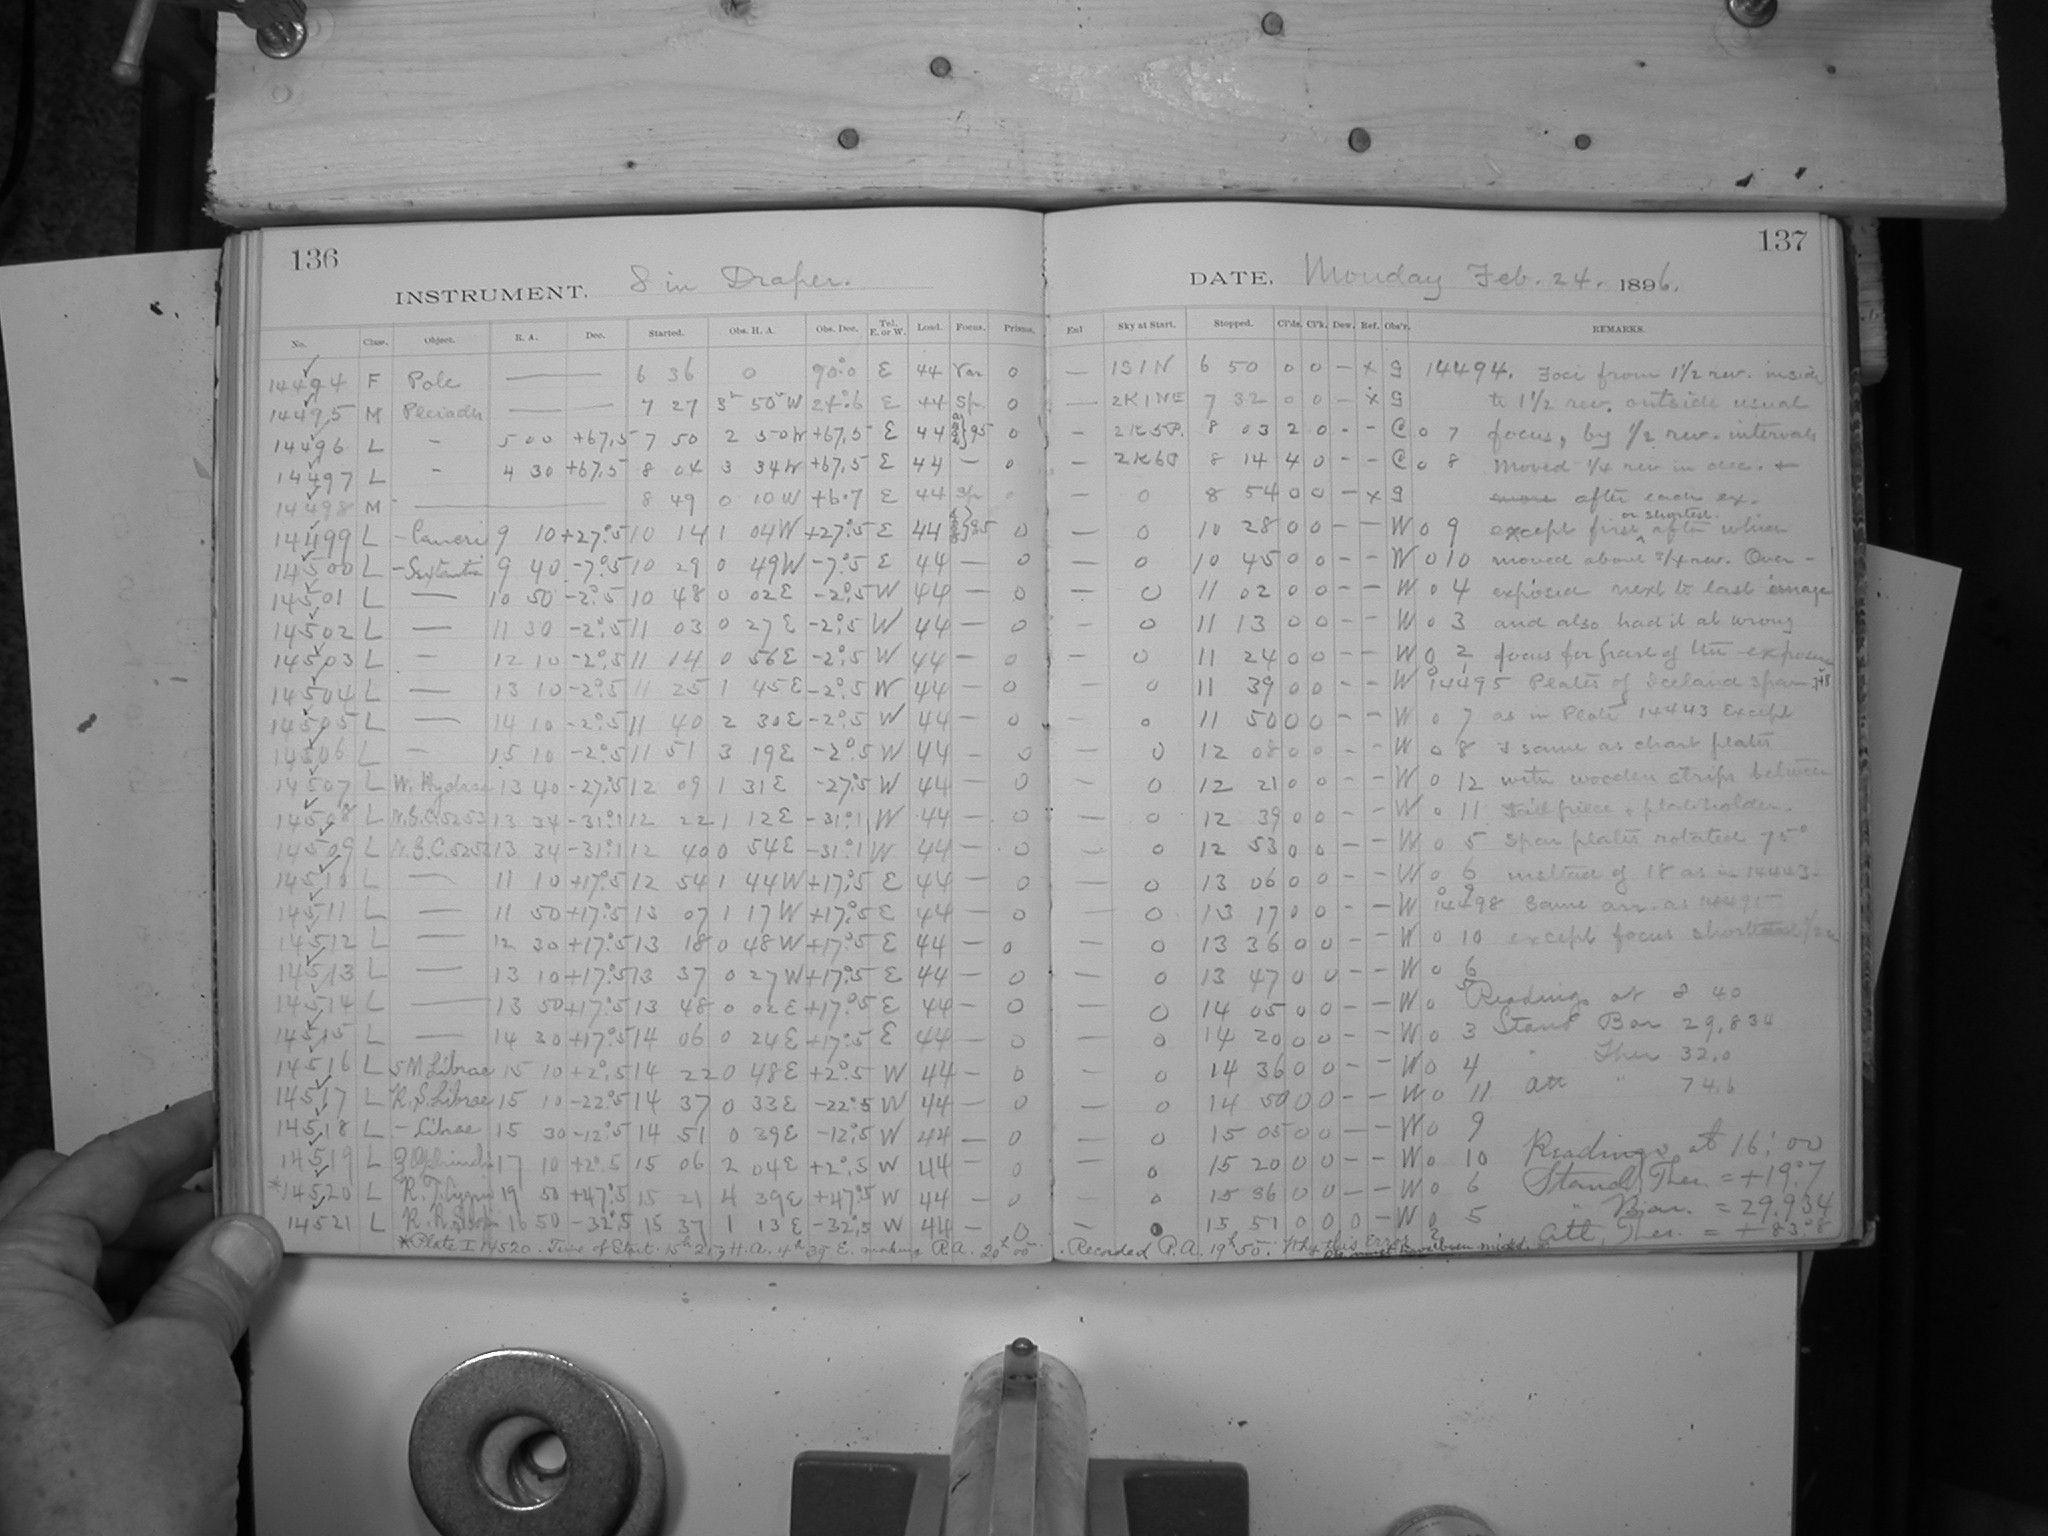 136
INSTRUMENT. 8 in Draper.
No. Class. Object. R. A. Dec. Started. Obs. H. A. Obs. Dec. Tel. E. or W. Load. Focus. Prisms.
14494 F Pole — 6 36 0 90°0 E 44 Var 0
14495 M Pleiades — 7 27 3 50 W 24°6 E 44 Sp. 0
14496 L - 5 00 +67.5 7 50 2 50W +67.5 E 44 95 0
14497 L - 4 30 +67.5 8 04 3 34W +67.5 E 44 — 0
14498 M — 8 49 0 10W +6.7 E 44 Sp 0
14499 L - Cancri 9 10 +27°.5 10 14 1 04W +27°.5 E 44 95 0
14500 L - Sextantis 9 40 -7°.5 10 29 0 49W -7°.5 E 44 — 0
14501 L — 10 50 -2°.5 10 48 0 02E -2°.5 W 44 — 0
14502 L — 11 30 -2°.5 11 03 0 27E -2°.5 W 44 — 0
14503 L — 12 10 -2°.5 11 14 0 56E -2°.5 W 44 — 0
14504 L — 13 10 -2°.5 11 25 1 45E -2°.5 W 44 — 0
14505 L — 14 10 -2°.5 11 40 2 30E -2°.5 W 44 — 0
14506 L — 15 10 -2°.5 11 51 3 19E -2°.5 W 44 — 0
14507 L W. Hydrae 13 40 -27°.5 12 09 1 31E -27°.5 W 44 — 0
14508 L N.G.C. 5253 13 34 -31°.1 12 22 1 12E -31°.1 W 44 — 0
14509 L N.G.C. 5253 13 34 -31°.1 12 40 0 54E -31°.1 W 44 — 0
14510 L — 11 10 +17°.5 12 54 1 44W +17°.5 E 44 — 0
14511 L — 11 50 +17°.5 13 07 1 17W +17°.5 E 44 — 0
14512 L — 12 30 +17°.5 13 18 0 48W +17°.5 E 44 — 0
14513 L — 13 10 +17°.5 13 37 0 27W +17°.5 E 44 — 0
14514 L — 13 50 +17°.5 13 48 0 02E +17°.5 E 44 — 0
14515 L — 14 30 +17°.5 14 06 0 24E +17°.5 E 44 — 0
14516 L 5 M Librae 15 10 +2°.5 14 22 0 48E +2°.5 W 44 — 0
14517 L R.S. Librae 15 10 -22°.5 14 37 0 33E -22°.5 W 44 — 0
14518 L - Librae 15 30 -12°.5 14 51 0 39E -12°.5 W 44 — 0
14519 L 17 10 +2°.5 15 06 2 04E +2°.5 W 44 — 0
*14520 L R.T. Cygni 19 50 +47°.5 15 21 4 39E +47°.5 W 44 — 0
14521 L R.R. Scorpii 16 50 -32°.5 15 37 1 13E -32°.5 W 44 — 0
*Plate I 14520. Time of Start 15h 21, H.A. 4h 39 E. making R.A. 20h 00
137
DATE, Monday Feb. 24. 1896.
End Sky at Start. Stopped. Cl'ds. Cl'k. Dew. Ref. Obs'r. REMARKS.
— 1S1N 6 50 0 0 - x G 14494. Foci from 1 1/2 rev. inside
— 2K1NE 7 32 0 0 - x G to 1 1/2 rev. outside usual
- 2K5P. 8 03 2 0 - - C 0 7 focus, by 1/2 rev. intervals
— 2K6P 8 14 4 0 - - C 0 8 Moved 1/4 rev in dec.
— 0 8 54 0 0 - x G after each ex.
or shortest
— 0 10 28 0 0 - - W 0 9 except first after which
— 0 10 45 0 0 - - W 0 10 moved about 3/4 rev. Over-
— 0 11 02 0 0 - - W 0 4 exposed next to last image
— 0 11 13 0 0 - - W 0 3 and also had it at wrong
— 0 11 24 0 0 - - W 0 2 focus for part of the exposure
— 0 11 39 0 0 - - W 0 1 14495 Plates of Iceland spar
— 0 11 50 0 0 - - W 0 7 as in Plate 14443 Except
— 0 12 08 0 0 - - W 0 8 same as chart plates
— 0 12 21 0 0 - - W 0 12 with wooden strips between
— 0 12 39 0 0 - - W 0 11 tailpiece & plateholder.
— 0 12 53 0 0 - - W 0 5 Spar plates rotated 75°
— 0 13 06 0 0 - - W 0 6 instead of 18 as in 14443-
— 0 13 17 0 0 - - W 0 9 14498 Same arr. as 14495
— 0 13 36 0 0 - - W 0 10 except focus shortened
— 0 13 47 0 0 - - W 0 6
— 0 14 05 0 0 - - W 0 5 Readings at 8 40
— 0 14 20 0 0 - - W 0 3 Stand Bar 29,834
— 0 14 36 0 0 - - W 0 4 " Ther 32.0
— 0 14 50 0 0 - - W 0 11 Att " 74.6
— 0 15 05 0 0 - - W 0 9
— 0 15 20 0 0 - - W 0 10 Readings at 16:00
— 0 15 36 0 0 - - W 0 6 Stand. Ther. = +19°.7
- 0 15 51 0 0 0 - W 0 5 " Bar. = 29.934
Att. Ther. = +83°.8
. Recorded R.A. 19h 50. Why this Error?